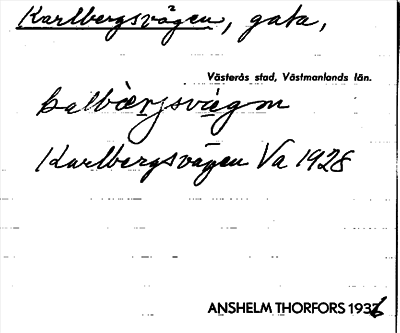 Karlbergsvägen, gata,
Västerås stad, Västmanlands län.
kalbàrjsvä̀gen
Karlbergsvägen Va 1928
ANSHELM THORFORS 1936